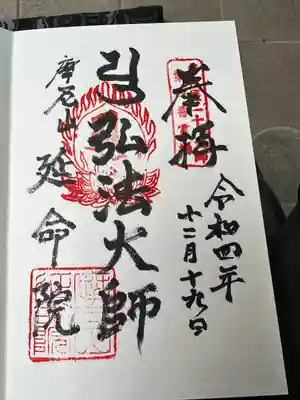 奉拝
令和四年
十二月十九日
弘法大師
摩尼山
延命院